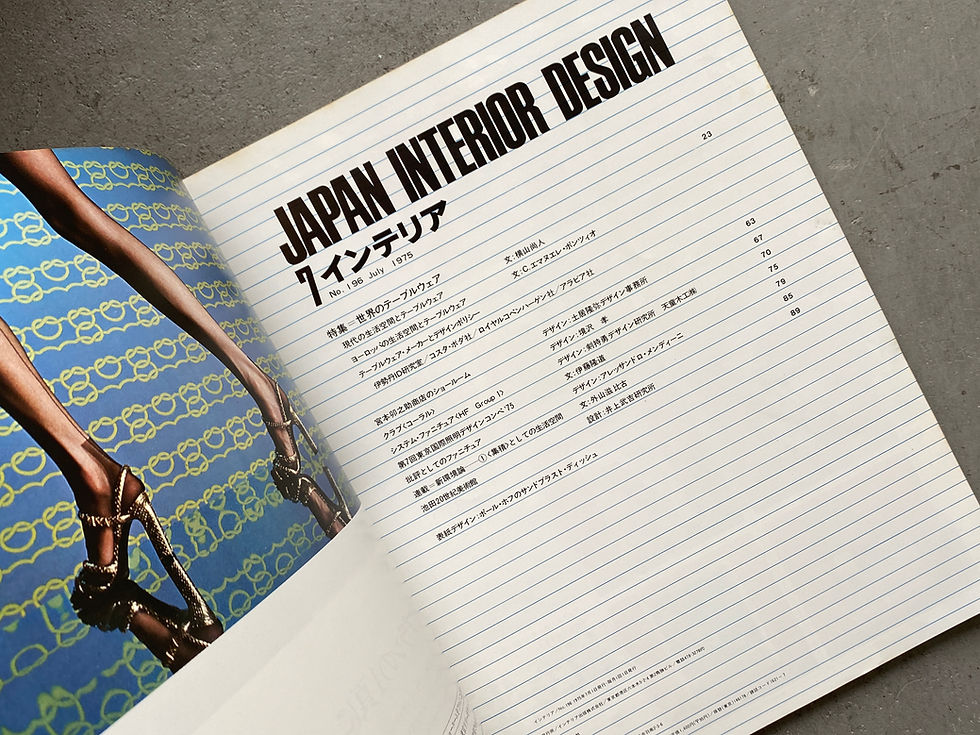 JAPAN INTERIOR DESIGN
7 インテリア
No. 196 July 1975
特集=世界のテーブルウェア 23
現代の生活空間とテーブルウェア 文:横山尚人
ヨーロッパの生活空間とテーブルウェア 文:C.エマヌエレ・ポンツィオ
テーブルウェア・メーカーとデザインポリシー
伊勢丹ID研究室/コスタ・ボダ社/ロイヤルコペンハーゲン社/アラビア社
宮本卯之助商店のショールーム デザイン:土居隆弥デザイン事務所 63
クラブ〈コーラル〉 デザイン:境沢 孝 67
システム・ファニチュア〈HF Group 1〉 デザイン:剣持勇デザイン研究所 天童木工㈱ 70
第7回東京国際照明デザインコンペ'75 文:伊藤隆道 75
批評としてのファニチュア デザイン:アレッサンドロ・メンディーニ 79
連載=新環境論 ①〈集積〉としての生活空間 文:外山滋比古 85
池田20世紀美術館 設計:井上武吉研究所 89
表紙デザイン:ポール・ホフのサンドブラスト・ディッシュ